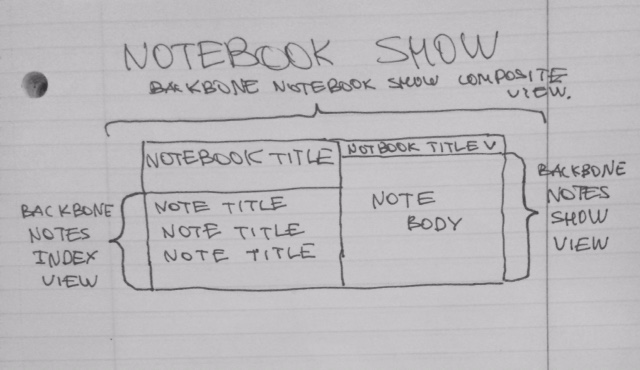 NOTEBOOK SHOW
BACKBONE NOTEBOOK SHOW COMPOSITE
VIEW.
NOTEBOOK TITLE
NOTBOOK TITLE V
BACKBONE
NOTES
INDEX
VIEW
NOTE TITLE
NOTE TITLE
NOTE TITLE
NOTE
BODY
BACKBONE
NOTES
SHOW
VIEW